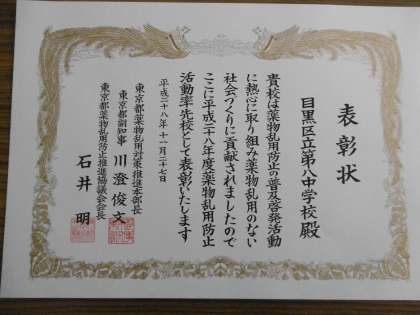 表彰状
目黒区立第八中学校殿
貴校は薬物乱用防止の普及啓発活動
に熱心に取り組み薬物乱用のない
社会づくりに貢献されましたので
ここに平成二十八年度薬物乱用防止
活動率先校として表彰いたします
平成二十八年十一月二十七日
東京都薬物乱用対策推進本部長
東京都副知事 川澄俊文
東京都薬物乱用防止推進協議会会長
石井 明